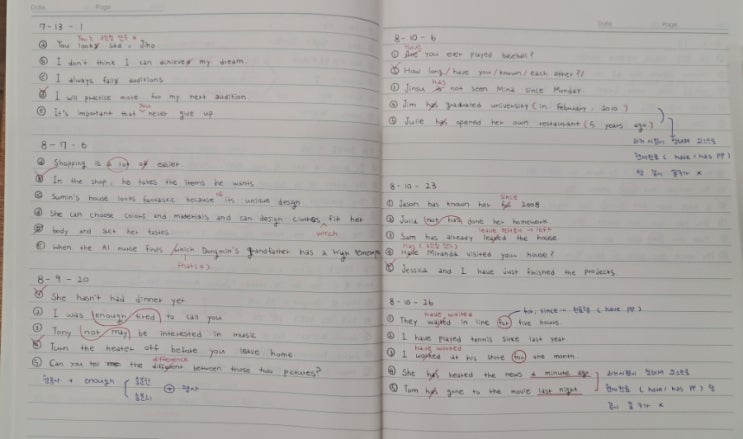 Date Page
7-13-1
You는 3인칭 단수 X
ⓐ You looks sad, Jiho
ⓑ I don't think I can achieves my dream.
ⓒ I always fails auditions
ⓓ I will practice more for my next audition
you
ⓔ It's important that never give up
8-7-6
ⓐ Shopping is a lot of easier
ⓑ In the shop, he takes the items he wants
of
ⓒ Sumin's house looks fantastic because its unique design
ⓓ She can choose colors and materials and can design clothes fit her
which
body and suit her tastes
ⓔ When the AI nurse finds which Dongmin's grandfather has a high
that(o)
8-9-20
① She hasn't had dinner yet
② I was enough tired to call you
③ Tony not may be interested in music
④ Turn the heater off before you leave home
difference
⑤ Can you tell me the different between those two pictures?
+ enough
Date Page
8-10-6
Have
① Are you ever played baseball?
② How long / have you / known / each other? /
has
③ Jinsu is not seen Mina since Monday
④ Jim has graduated university (in February, 2010)
⑤ Julie has opened her own restaurant (5 years ago.)
과거시점이 정해져 있으므로
현재완료 (have / has PP)
X
8-10-23
since
① Jason has known her for 2008
② Julia not has done her homework
leave 현재완료 → left
③ Sam has already leaved the house
Has (3인칭 단수)
④ Have Miranda visited your house?
⑤ Jessica and I have just finished the projects
8-10-26
have waited
for, since → 완료형 (have PP)
① They waited in line for five hours.
② I have played tennis since last year
have worked
③ I worked at his store for one month
④ She has heard the news a minute ago
과거시점이 정해져 있으므로
⑤ Tom has gone to the movie last night
현재완료 (have / has PP)
X